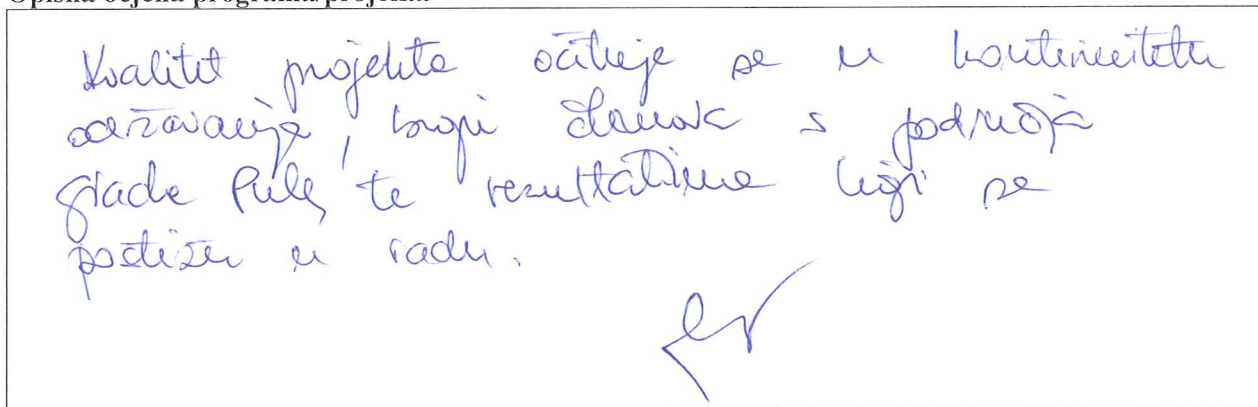 Opisna ocjena programa/projekta
Kvalitet projekta očituje se u kontinuitetu
održavanja, broju članova s područja
grada Pule, te rezultatima koji se
postižu u radu.